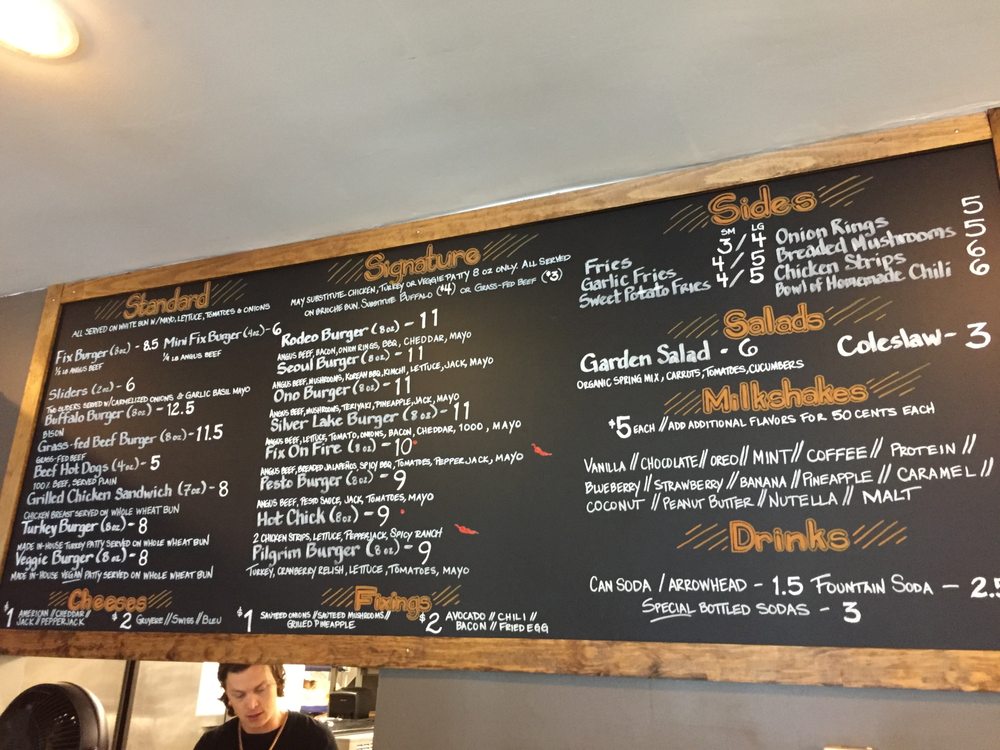 Standard
ALL SERVED ON WHITE BUN W/MAYO, LETTUCE, TOMATOES & ONIONS
Fix Burger (8oz) - 8.5 Mini Fix Burger (4oz) - 6
½ LB ANGUS BEEF ¼ LB ANGUS BEEF
Sliders (2oz) - 6
TWO SLIDERS SERVED W/CARMELIZED ONIONS & GARLIC BASIL MAYO
Buffalo Burger (8oz) - 12.5
BISON
Grass-fed Beef Burger (8oz) - 11.5
GRASS-FED BEEF
Beef Hot Dogs (4oz) - 5
100% BEEF, SERVED PLAIN
Grilled Chicken Sandwich (7oz) - 8
CHICKEN BREAST SERVED ON WHOLE WHEAT BUN
Turkey Burger (8oz) - 8
MADE IN-HOUSE TURKEY PATTY SERVED ON WHOLE WHEAT BUN
Veggie Burger (8oz) - 8
MADE IN-HOUSE VEGAN PATTY SERVED ON WHOLE WHEAT BUN
Cheeses
$1 AMERICAN // CHEDDAR //
JACK // PEPPERJACK
$2 GRUYERE // SWISS // BLEU
Signature
MAY SUBSTITUTE CHICKEN, TURKEY OR VEGGIE PATTY 8 OZ ONLY. ALL SERVED
ON BRIOCHE BUN. SUBSTITUTE BUFFALO ($4) OR GRASS-FED BEEF ($3)
Rodeo Burger (8oz) - 11
ANGUS BEEF, BACON, ONION RINGS, BBQ, CHEDDAR, MAYO
Seoul Burger (8oz) - 11
ANGUS BEEF, MUSHROOMS, KOREAN BBQ, KIMCHI, LETTUCE, JACK, MAYO
Ono Burger (8oz) - 11
ANGUS BEEF, MUSHROOMS, TERIYAKI, PINEAPPLE, JACK, MAYO
Silver Lake Burger (8oz) - 11
ANGUS BEEF, LETTUCE, TOMATO, ONIONS, BACON, CHEDDAR, 1000, MAYO
Fix On Fire (8oz) - 10
ANGUS BEEF, BREADED JALAPEÑOS, SPICY BBQ, TOMATOES, PEPPER JACK, MAYO
Pesto Burger (8oz) - 9
ANGUS BEEF, PESTO SAUCE, JACK, TOMATOES, MAYO
Hot Chick (8oz) - 9
2 CHICKEN STRIPS, LETTUCE, PEPPERJACK, SPICY RANCH
Pilgrim Burger (8oz) - 9
TURKEY, CRANBERRY RELISH, LETTUCE, TOMATOES, MAYO
Fixings
$1 SAUTEED ONIONS // SAUTEED MUSHROOMS //
GRILLED PINEAPPLE
$2 AVOCADO // CHILI //
BACON // FRIED EGG
Sides
SM LG
Fries 3/4
Garlic Fries 4/5
Sweet Potato Fries 4/5
Onion Rings 5
Breaded Mushrooms 5
Chicken Strips 6
Bowl of Homemade Chili 6
Salads
Garden Salad - 6 Coleslaw - 3
ORGANIC SPRING MIX, CARROTS, TOMATOES, CUCUMBERS
Milkshakes
$5 EACH // ADD ADDITIONAL FLAVORS FOR 50 CENTS EACH
VANILLA // CHOCOLATE // OREO // MINT // COFFEE // PROTEIN //
BLUEBERRY // STRAWBERRY // BANANA // PINEAPPLE // CARAMEL //
COCONUT // PEANUT BUTTER // NUTELLA // MALT
Drinks
CAN SODA / ARROWHEAD - 1.5 FOUNTAIN SODA - 2.5
SPECIAL BOTTLED SODAS - 3